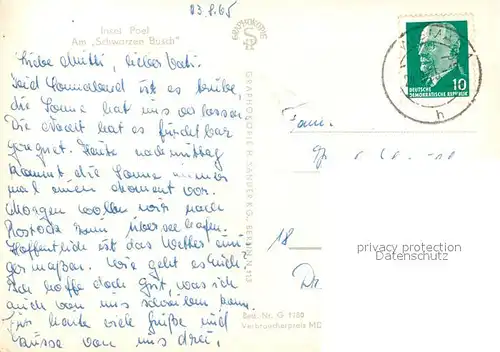 03.8.65
Insel Poel
Am „Schwarzen Busch"
Liebe Mutti, lieber Vati.
Seid Sonnabend ist es trübe,
die Sonne hat uns verlassen.
Die Nacht hat es furchtbar
geregnet. Heute nachmittag
kommt die Sonne immer
mal einen Moment vor.
Morgen wollen wir nach
Rostock zum Überseehafen.
Hoffentlich ist das Wetter eini
germaßen. Wie geht es Euch?
Ich hoffe doch gut, was ich
auch von uns schreiben kann.
Für heute viele Grüße und
Küsse von uns drei,
GRAPHOKOPIE
GRAPHOKOPIE H. SANDER K.G., BERLIN N 113
DEUTSCHE
DEMOKRATISCHE REPUBLIK
10
h
Fam.
18
privacy protection
Datenschutz
Best.-Nr. G
Verbraucherpreis MD